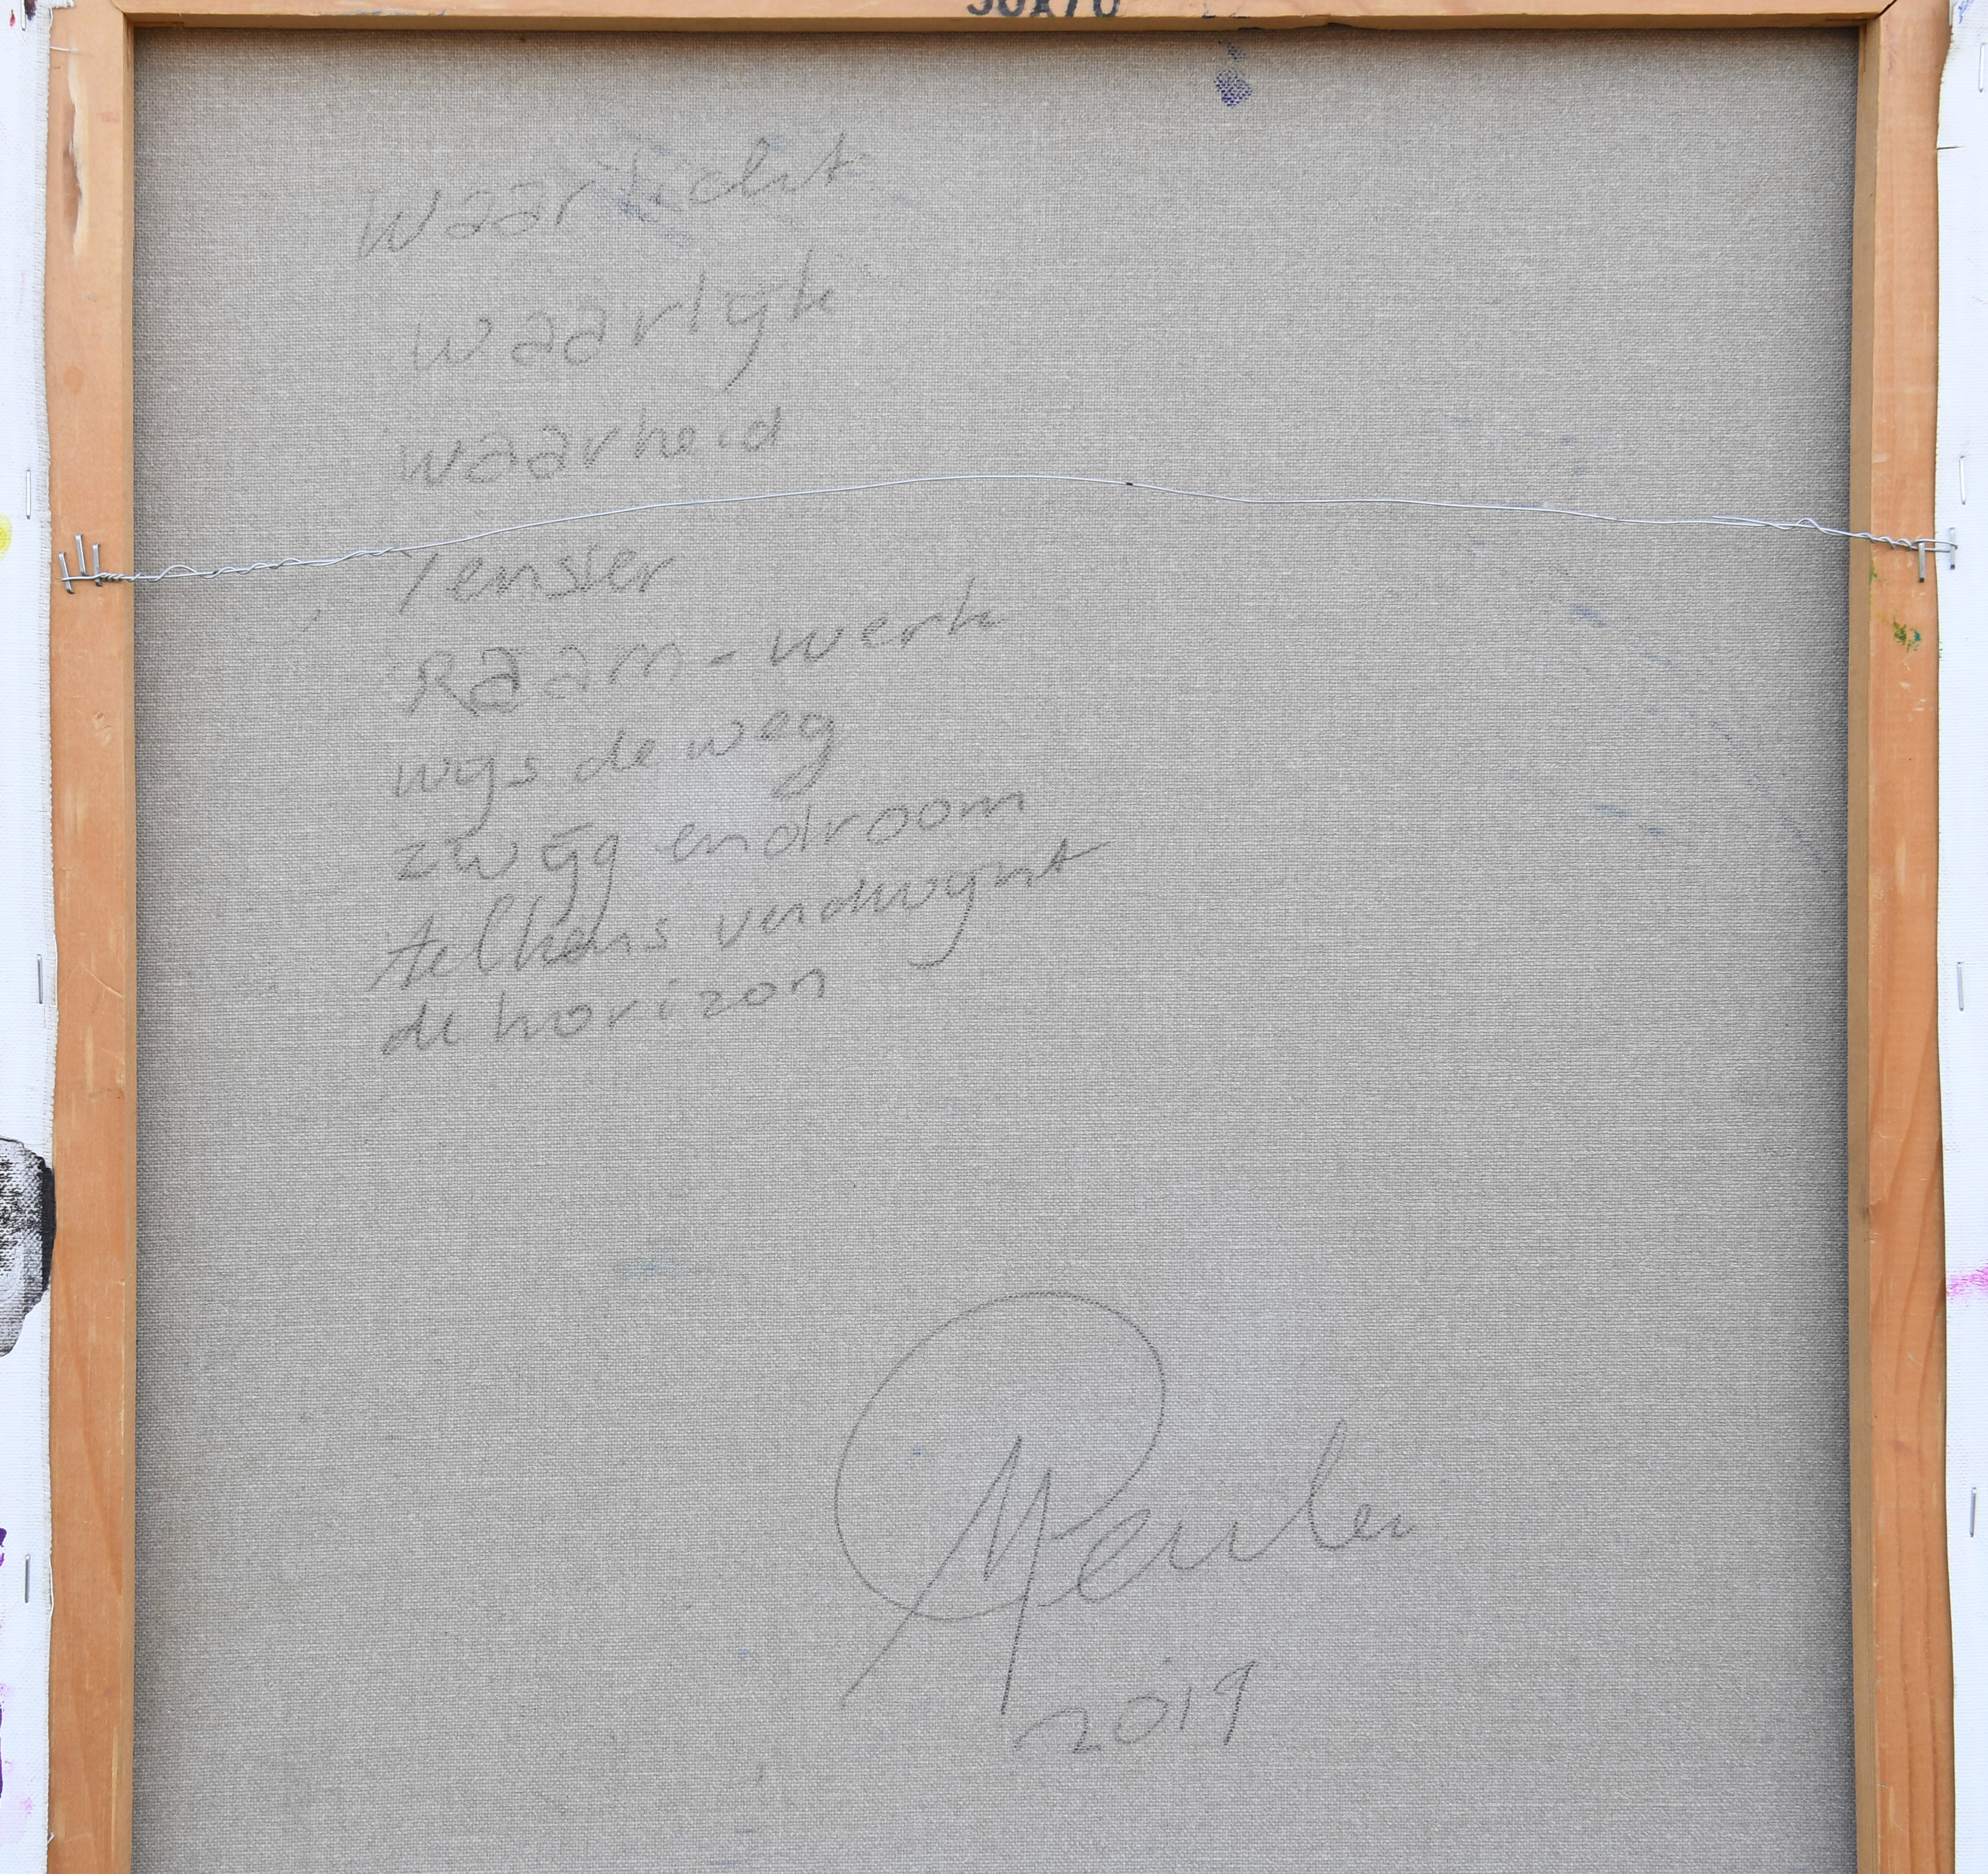 Waar licht
waarlijk
waarheid
Venster
Raam-werk
wijs de weg
zwijg en droom
telkens verdwijnt
de horizon
2019